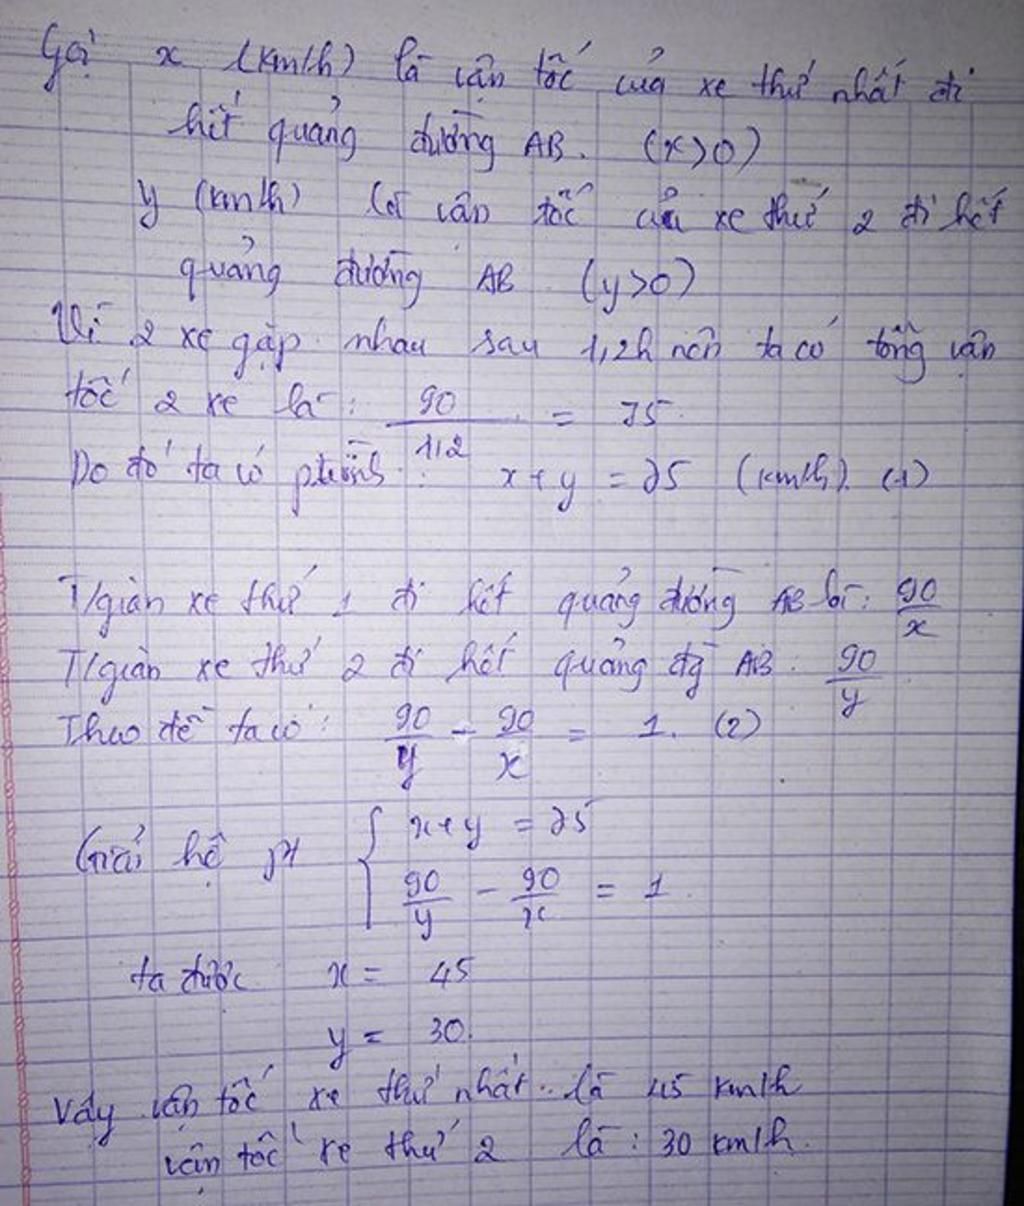 Gọi x (km/h) là vận tốc của xe thứ nhất đi
hết quảng đường AB. (x>0)
y (km/h) là vận tốc của xe thứ 2 đi hết
quảng đường AB (y>0)
Vì 2 xe gặp nhau sau 1,2h nên ta có tổng vận
tốc 2 xe là: 90/1,2 = 75.
Do đó ta có ptrình: x+y = 75 (km/h). (1)
T/gian xe thứ 1 đi hết quảng đường AB là: 90/x
T/gian xe thứ 2 đi hết quảng đg AB. 90/y
Theo đề ta có: 90/y - 90/x = 1. (2)
Giải hệ pt { x+y = 75
90/y - 90/x = 1.
ta được x = 45
y = 30.
Vậy vận tốc xe thứ nhất là 45 km/h
vận tốc xe thứ 2 là: 30 km/h.